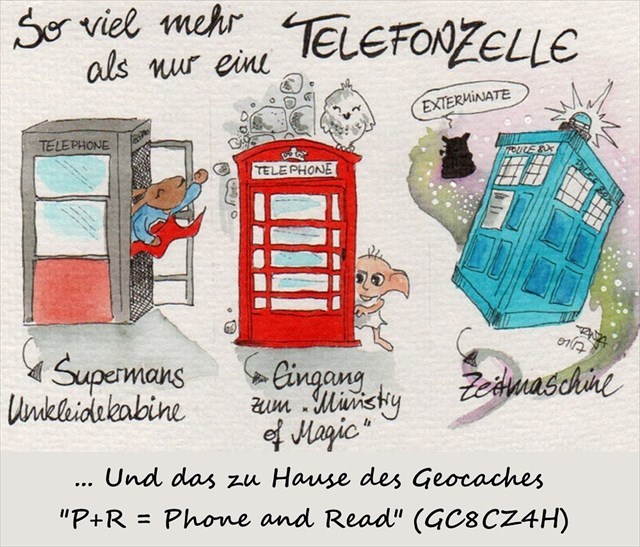 So viel mehr
als nur eine TELEFONZELLE
EXTERMINATE
TELEPHONE
TELEPHONE
POLICE BOX
POLICE BOX
Supermans
Umkleidekabine
Eingang
zum „Ministry
of Magic"
Zeitmaschine
01/17
... Und das zu Hause des Geocaches
"P+R = Phone and Read" (GC8CZ4H)